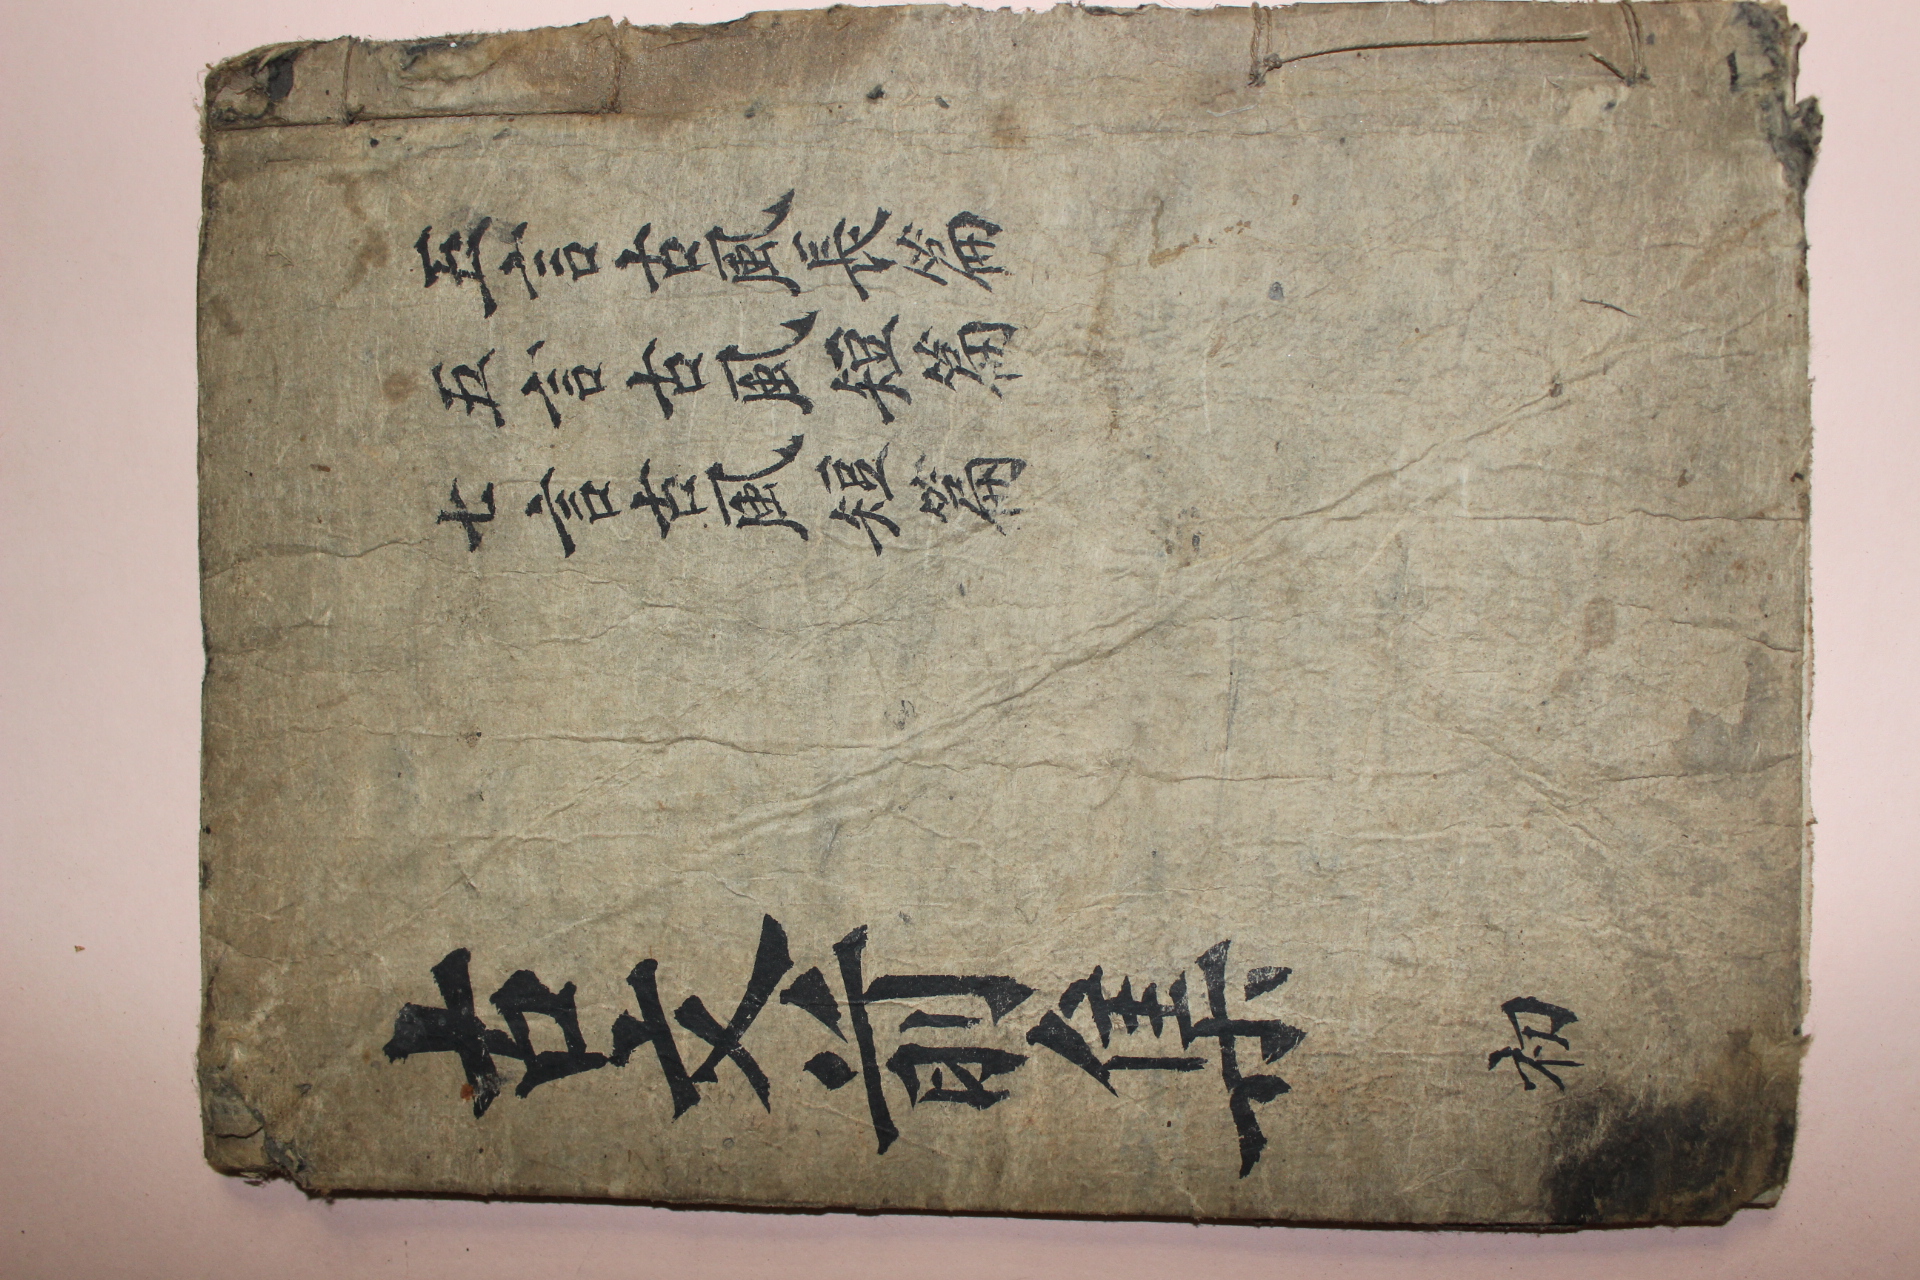 五言古風長篇
五言古風短篇
七言古風短篇
古文前集 初